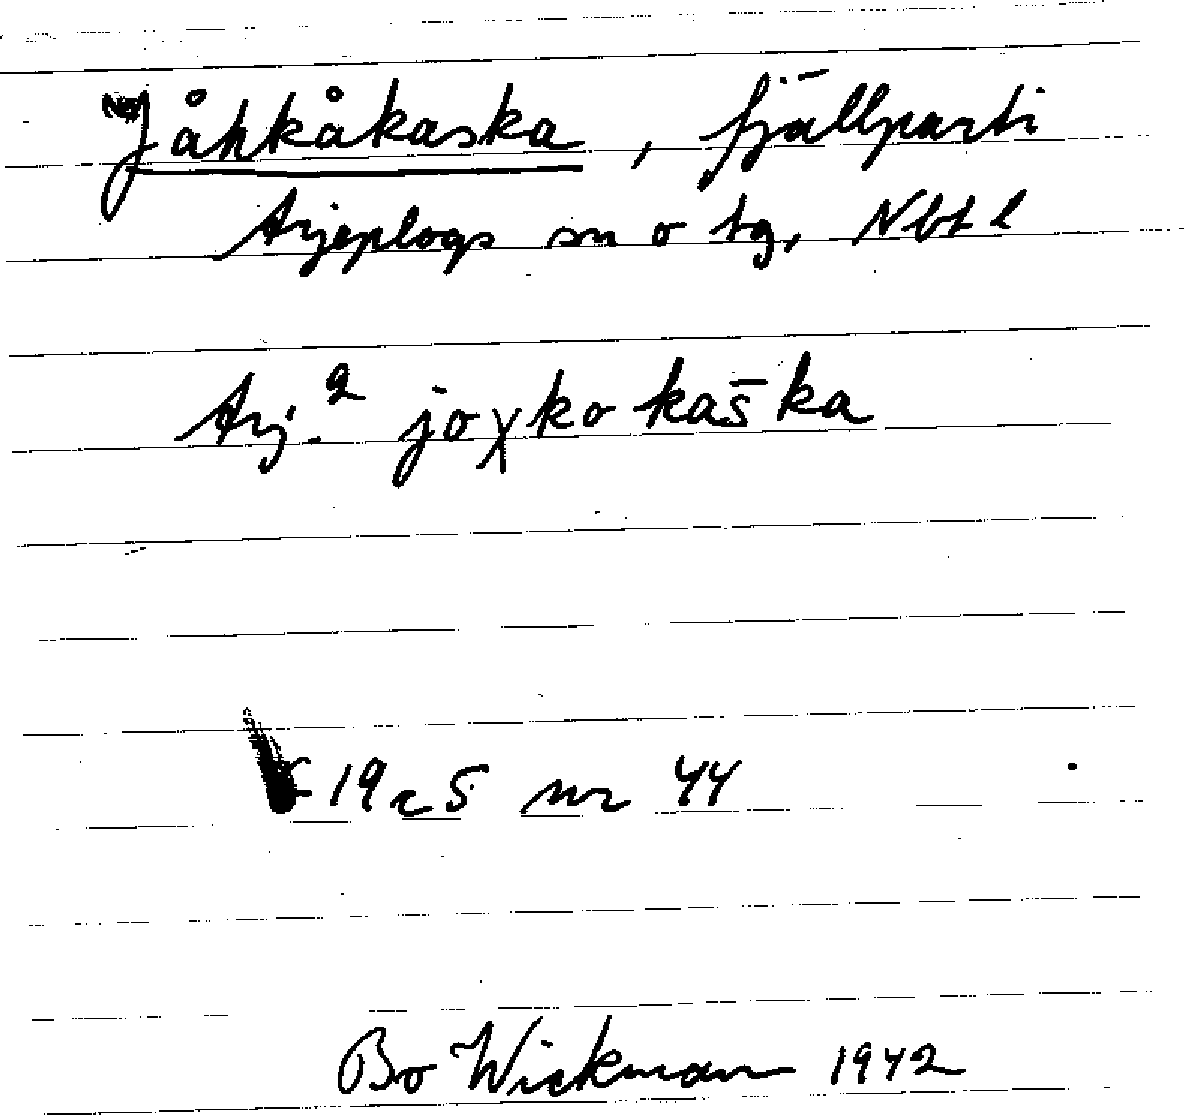 Jåhkåkaska, fjällparti
Arjeplogs sn o tg, Nbt l
Arj.2 joχko kas̄ka
19 c 5 nr 44
Bo Wickman 1942